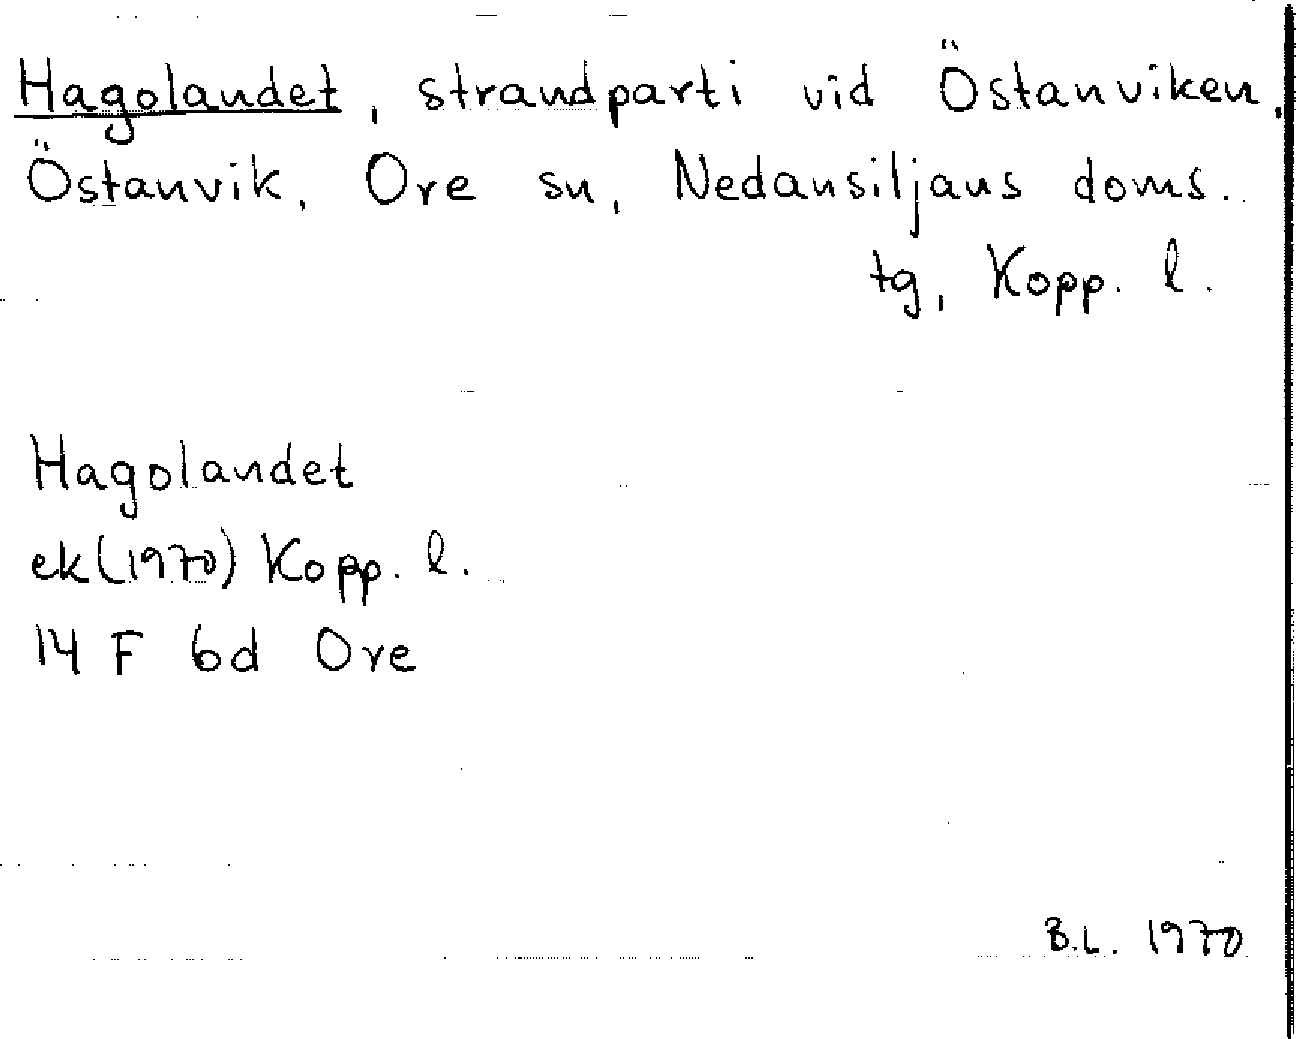 Hagolandet, strandparti vid Östanviken,
Östanvik, Ore sn, Nedansiljans doms.
tg, Kopp. l.
Hagolandet
ek(1970) Kopp. l.
14 F 6d Ore
B.L. 1970